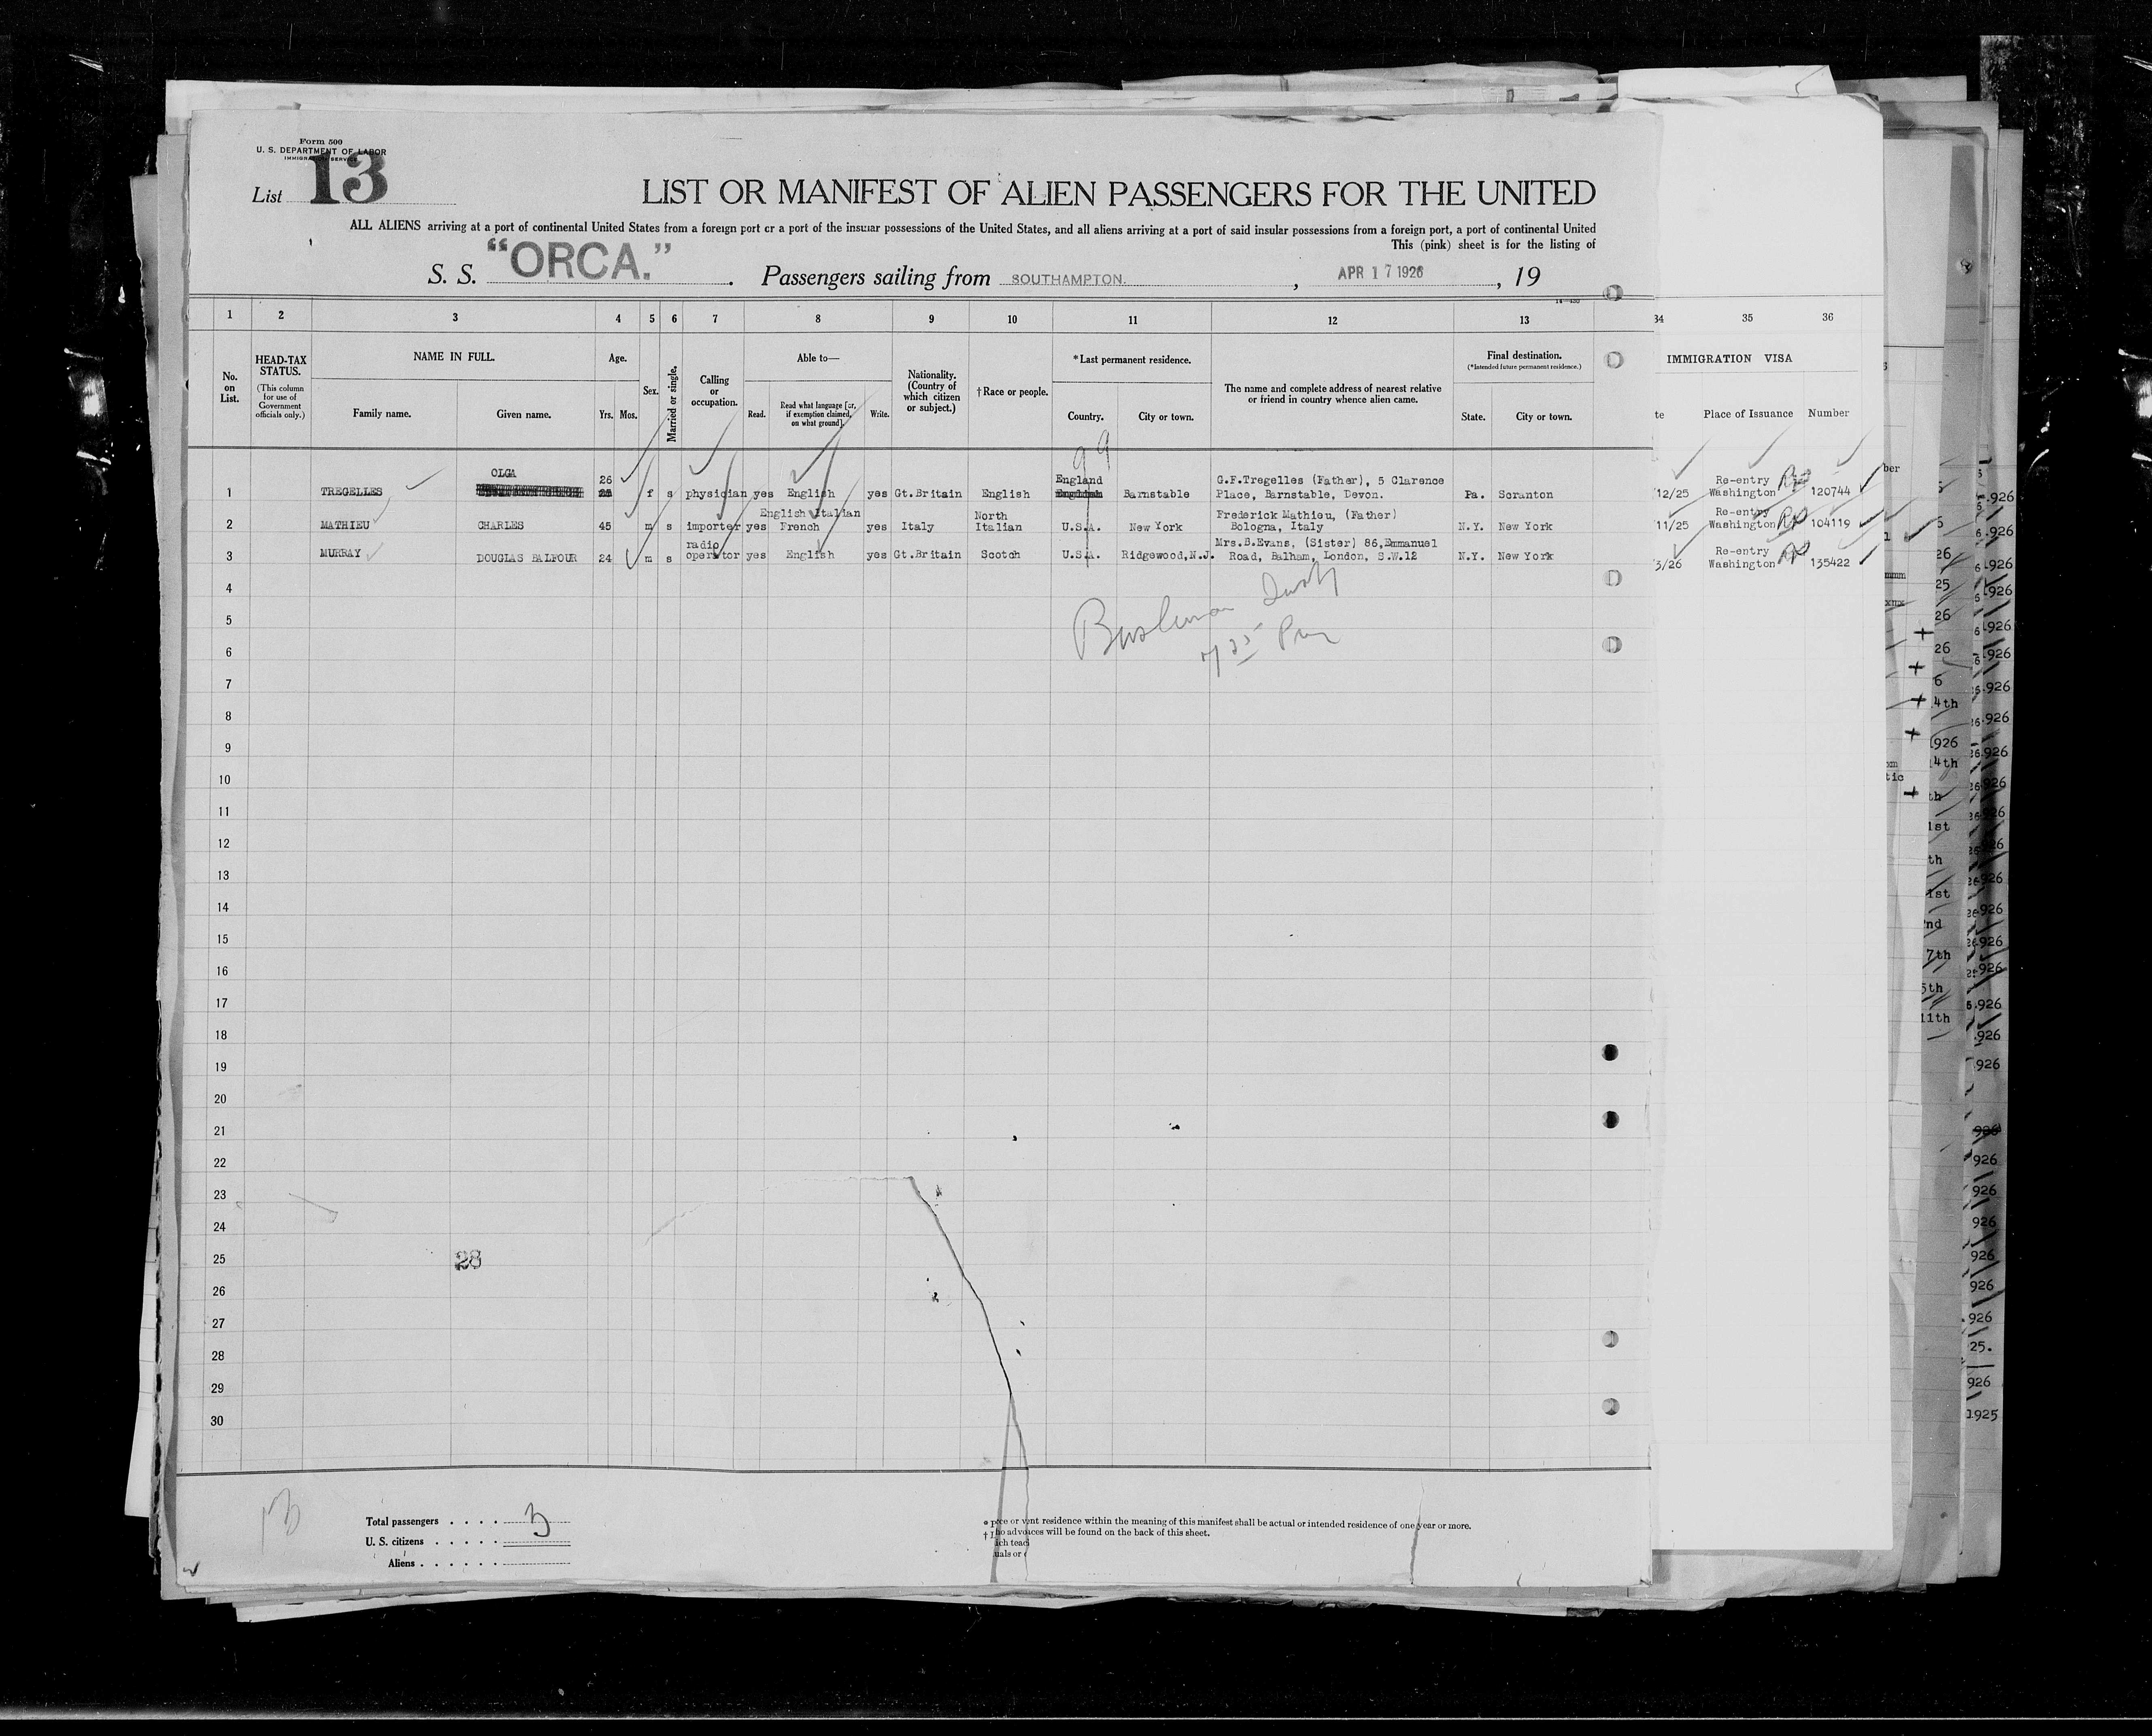 Form 500
U. S. DEPARTMENT OF LABOR
IMMIGRATION SERVICE
List 13
LIST OR MANIFEST OF ALIEN PASSENGERS FOR THE UNITED
ALL ALIENS arriving at a port of continental United States from a foreign port or a port of the insular possessions of the United States, and all aliens arriving at a port of said insular possessions from a foreign port, a port of continental United
This (pink) sheet is for the listing of
S. S. "ORCA." Passengers sailing from SOUTHAMPTON. , APR 17 1926 , 19
14—430
1 2 3 4 5 6 7 8 9 10 11 12 13 34 35 36
No. on List.
HEAD-TAX STATUS.
(This column for use of Government officials only.)
NAME IN FULL.
Family name. Given name.
Age.
Yrs. Mos.
Sex.
Married or single.
Calling or occupation.
Able to—
Read. Read what language [or, if exemption claimed, on what ground]. Write.
Nationality. (Country of which citizen or subject.)
†Race or people.
*Last permanent residence.
Country. City or town.
The name and complete address of nearest relative or friend in country whence alien came.
Final destination.
(*Intended future permanent residence.)
State. City or town.
IMMIGRATION VISA
te Place of Issuance Number
99
1 TREGELLES OLGA 26 f s physician yes English yes Gt.Britain English England Barnstable G.F.Tregelles (Father), 5 Clarence Place, Barnstable, Devon. Pa. Scranton 12/25 Re-entry Washington 120744
2 MATHIEU CHARLES 45 m s importer yes English Italian French yes Italy North Italian U.S.A. New York Frederick Mathieu, (Father) Bologna, Italy N.Y. New York 11/25 Re-entry Washington 104119
3 MURRAY DOUGLAS BALFOUR 24 m s radio operator yes English yes Gt.Britain Scotch U.S.A. Ridgewood,N.J. Mrs.B.Evans, (Sister) 86,Emmanuel Road, Balham, London, S.W.12 N.Y. New York 3/26 Re-entry Washington 135422
4
5
6
7
8
9
10
11
12
13
14
15
16
17
18
19
20
21
22
23
24
25 28
26
27
28
29
30
13
Total passengers . . . . 3
U. S. citizens . . . . .
Aliens . . . . . .
residence within the meaning of this manifest shall be actual or intended residence of one year or more.
will be found on the back of this sheet.